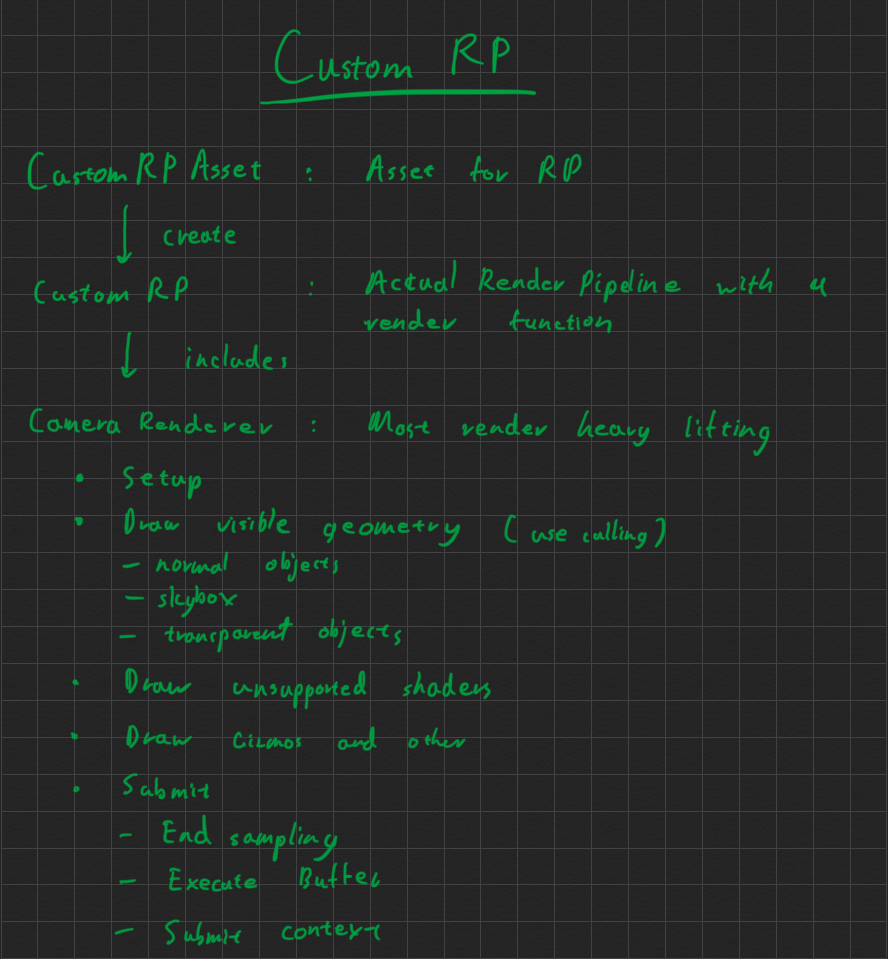 Custom RP
Custom RP Asset : Asset for RP
↓ create
Custom RP : Actual Render Pipeline with a
render function
↓ includes
Camera Renderer : Most render heavy lifting
• Setup
• Draw visible geometry (use culling)
- normal objects
- skybox
- transparent objects
• Draw unsupported shaders
• Draw Gizmos and other
• Submit
- End sampling
- Execute Buffer
- Submit context